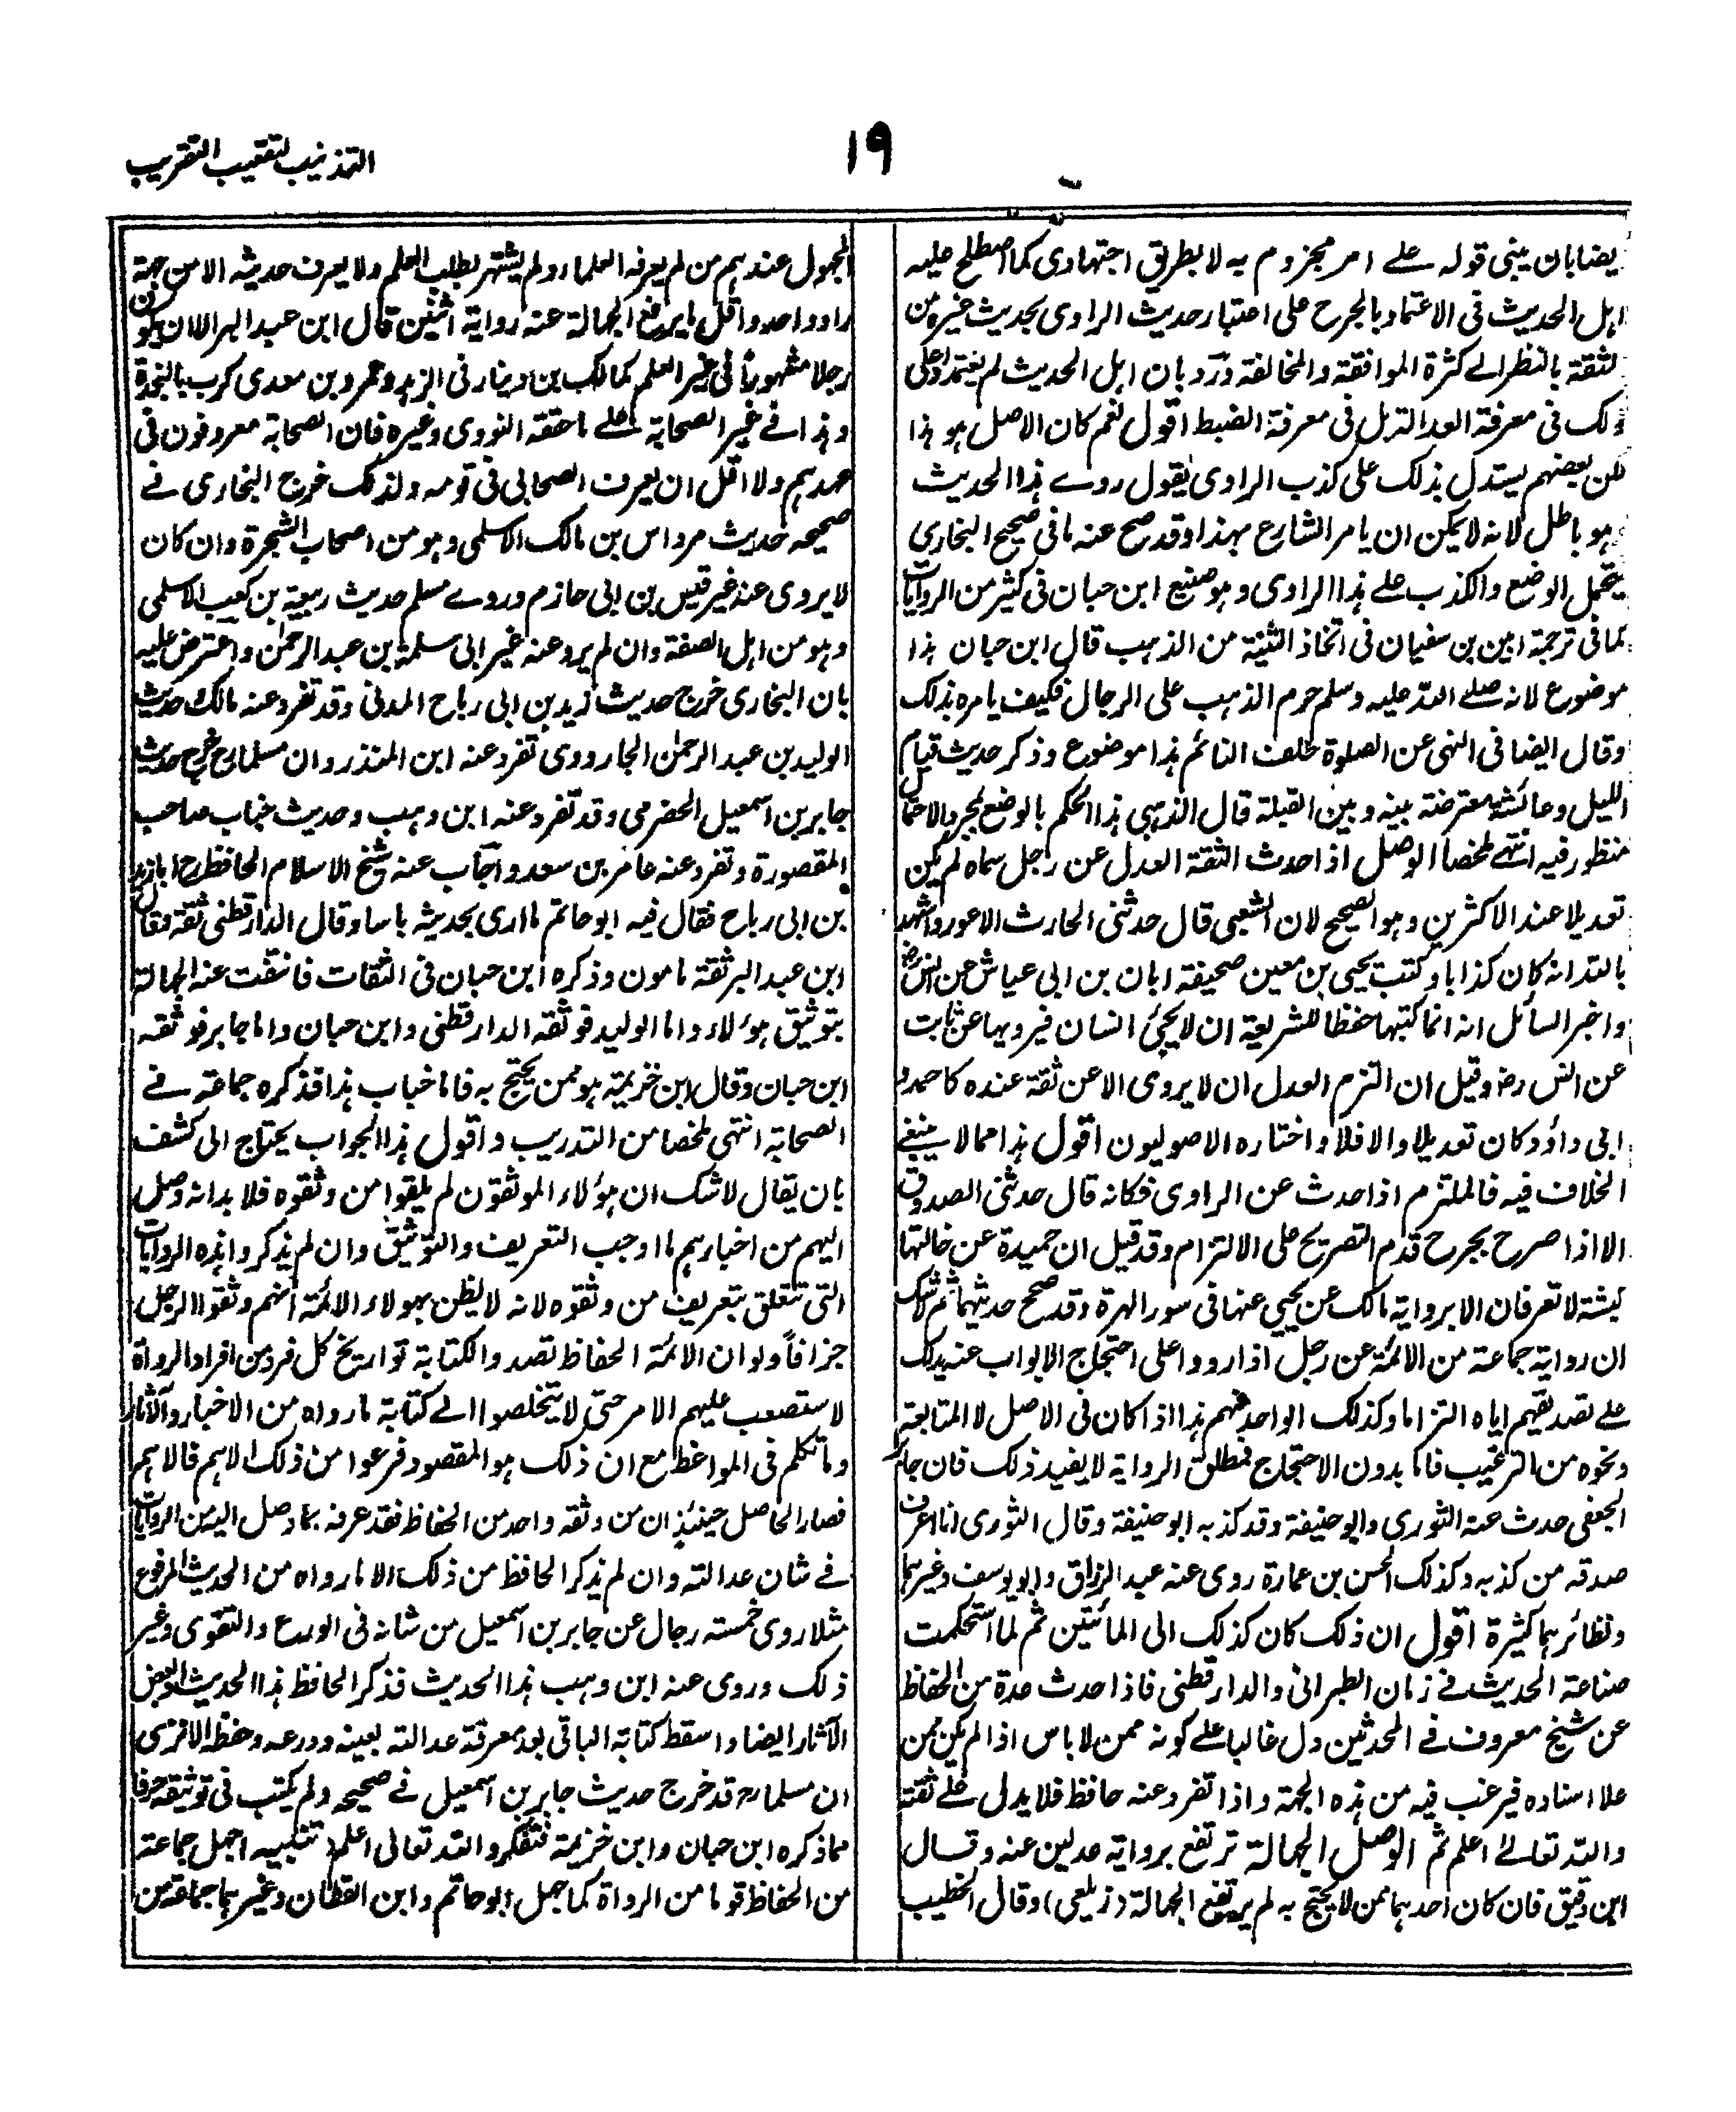 التذنيب لتعقيب التقريب
١٩
يضا بان يبنى قوله على امر مجزوم به لا بطريق اجتهادى كما اصطلح عليه
اهل الحديث فى الاعتماد بالجرح على اعتبار حديث الراوى بحديث غيره من
لثقة بالنظر الى كثرة الموافقة والمخالفة ورد بان اهل الحديث لم يعتمدوا على
ذلك فى معرفة العدالة بل فى معرفة الضبط اقول نعم كان الاصل هو هذا
لكن بعضهم يستدل بذلك على كذب الراوى يقول روى هذا الحديث
هو باطل لانه لا يمكن ان يامر الشارع بهذا وقد صح عنه ما فى صحيح البخارى
يحمل الوضع والكذب على هذا الراوى وهو صنيع ابن حبان فى كثير من الروايات
كما فى ترجمة ابين بن سفيان فى اتخاذ الثنية من الذهب قال ابن حبان هذا
موضوع لانه صلى الله عليه وسلم حرم الذهب على الرجال فكيف يامره بذلك
وقال ايضا فى النهى عن الصلوة خلف النائم هذا موضوع وذكر حديث قيام
الليل وعائشة معترضة بينه وبين القبلة قال الذهبى هذا الحكم بالوضع لمجرد الاحتمال
منظور فيه انتهى ملخصا الوصل اذا حدث الثقة العدل عن رجل سماه لم يكن
تعديلا عند الاكثرين وهو الصحيح لان الشعبى قال حدثنى الحارث الاعور واشهد
بالله انه كان كذابا وكتب يحيى بن معين صحيفة ابان بن ابى عياش عن انس رض
واخبر السائل انه انما كتبها حفظا للشريعة ان لا يجئ انسان فيرويها عن ثابت
عن انس رض وقيل ان التزم العدل ان لا يروى الا عن ثقة عنده كاحمد و
ابى داؤد كان تعديلا والا فلا واختاره الاصوليون اقول هذا مما لا ينبغى
الخلاف فيه فالملتزم اذا حدث عن الراوى فكانه قال حدثنى الصدوق
الا اذا صرح بجرح قدم التصريح على الالتزام وقد قيل ان حميدة عن خالتها
كبشة لا تعرفان الا برواية مالك عن يحيى عنها فى سور الهرة وقد صح حديثهما ثم لا شك
ان رواية جماعة من الائمة عن رجل اذا رووا على احتجاج الابواب عنه يدل
على تصديقهم اياه التزاما وكذلك الواحد منهم هذا اذا كان فى الاصل لا المتابعة
ونحوه من الترغيب فاما بدون الاحتجاج فمطلق الرواية لا يفيد ذلك فان جابر
الجعفى حدث عنه الثورى وابو حنيفة وقد كذبه ابو حنيفة وقال الثورى انا اعرف
صدقه من كذبه وكذلك الحسن بن عمارة روى عنه عبد الرزاق وابو يوسف وغيرهما
ونظائرهما كثيرة اقول ان ذلك كان كذلك الى المائتين ثم لما استحكمت
صناعة الحديث فى زمان الطبرانى والدارقطنى فاذا حدث عدة من الحفاظ
عن شيخ معروف فى المحدثين دل غالبا على كونه ممن لا باس اذا لم يكن ممن
علا اسناده فيرغب فيه من هذه الجهة واذا تفرد عنه حافظ فلا يدل على ثقته
والله تعالى اعلم ثم الوصل الجهالة ترتفع برواية عدلين عنه وقال
ابن دقيق فان كان احدهما ممن لا يحتج به لم يرتفع الجهالة (زيلعى) وقال الخطيب
المجهول عندهم من لم يعرفه العلماء ولم يشتهر بطلب العلم ولا يعرف حديثه الا من جهة
راو واحد واقل ما يرفع الجهالة عنه رواية اثنين قال ابن عبد البر الا ان يكون
رجلا مشهورا فى غير العلم كمالك بن دينار فى الزهد وعمرو بن معدى كرب بالنجدة
وهذا فى غير الصحابة على ما حققه النووى وغيره فان الصحابة معروفون فى
عهدهم ولا اقل ان يعرف الصحابى فى قومه ولذلك خرج البخارى فى
صحيحه حديث مرداس بن مالك الاسلمى وهو من اصحاب الشجرة وان كان
لا يروى عنه غير قيس بن ابى حازم وروى مسلم حديث ربيعة بن كعب الاسلمى
وهو من اهل الصفة وان لم يرو عنه غير ابى سلمة بن عبد الرحمٰن واعترض عليه
بان البخارى خرج حديث زيد بن ابى رباح المدنى وقد تفرد عنه مالك وحديث
الوليد بن عبد الرحمٰن الجارودى تفرد عنه ابن المنذر وان مسلما رح خرج حديث
جابر بن اسمعيل الحضرمى وقد تفرد عنه ابن وهب وحديث خباب صاحب
المقصورة وتفرد عنه عامر بن سعد واجاب عنه شيخ الاسلام الحافظ رح اما زيد
بن ابى رباح فقال فيه ابو حاتم ما ارى بحديثه باسا وقال الدارقطنى ثقة وقال
ابن عبد البر ثقة مامون وذكره ابن حبان فى الثقات فانتفت عنه الجهالة
بتوثيق هؤلاء واما الوليد فوثقه الدارقطنى وابن حبان واما جابر فوثقه
ابن حبان وقال ابن خزيمة هو ممن يحتج به فاما خباب هذا فذكره جماعة فى
الصحابة انتهى ملخصا من التدريب واقول هذا الجواب يحتاج الى كشف
بان يقال لا شك ان هؤلاء الموثقون لم يلقوا من وثقوه فلا بد انه وصل
اليهم من اخبارهم ما اوجب التعريف والتوثيق وان لم يذكروا هذه الروايات
التى تتعلق بتعريف من وثقوه لانه لا يظن بهؤلاء الائمة انهم وثقوا الرجل
جزافاً ولو ان الائمة الحفاظ تصدوا لكتابة تواريخ كل فرد من افراد الرواة
لاستصعب عليهم الامر حتى لا يتخلصوا الى كتابة ما رواه من الاخبار والآثار
وما تكلم فى المواعظ مع ان ذلك هو المقصود فرعوا من ذلك الاهم فالاهم
فصار الحاصل حينئذ ان من وثقه واحد من الحفاظ فقد عرفه بما وصل اليه من الروايات
فى شان عدالته وان لم يذكر الحافظ من ذلك الا ما رواه من الحديث المرفوع
مثلا روى خمسة رجال عن جابر بن اسمعيل من شانه فى الورع والتقوى وغير
ذلك وروى عنه ابن وهب هذا الحديث فذكر الحافظ هذا الحديث او بعض
الآثار ايضا واسقط كتابة الباقى بعد معرفة عدالته بعينه وورعه وحفظه الا ترى
ان مسلما رح قد خرج حديث جابر بن اسمعيل فى صحيحه ولم يكتب فى توثيقه حرفا
مما ذكره ابن حبان وابن خزيمة فتفكر والله تعالى اعلم تنبيه اجمل جماعة
من الحفاظ قوما من الرواة كما جهل ابو حاتم وابن القطان وغيرهما جماعة من